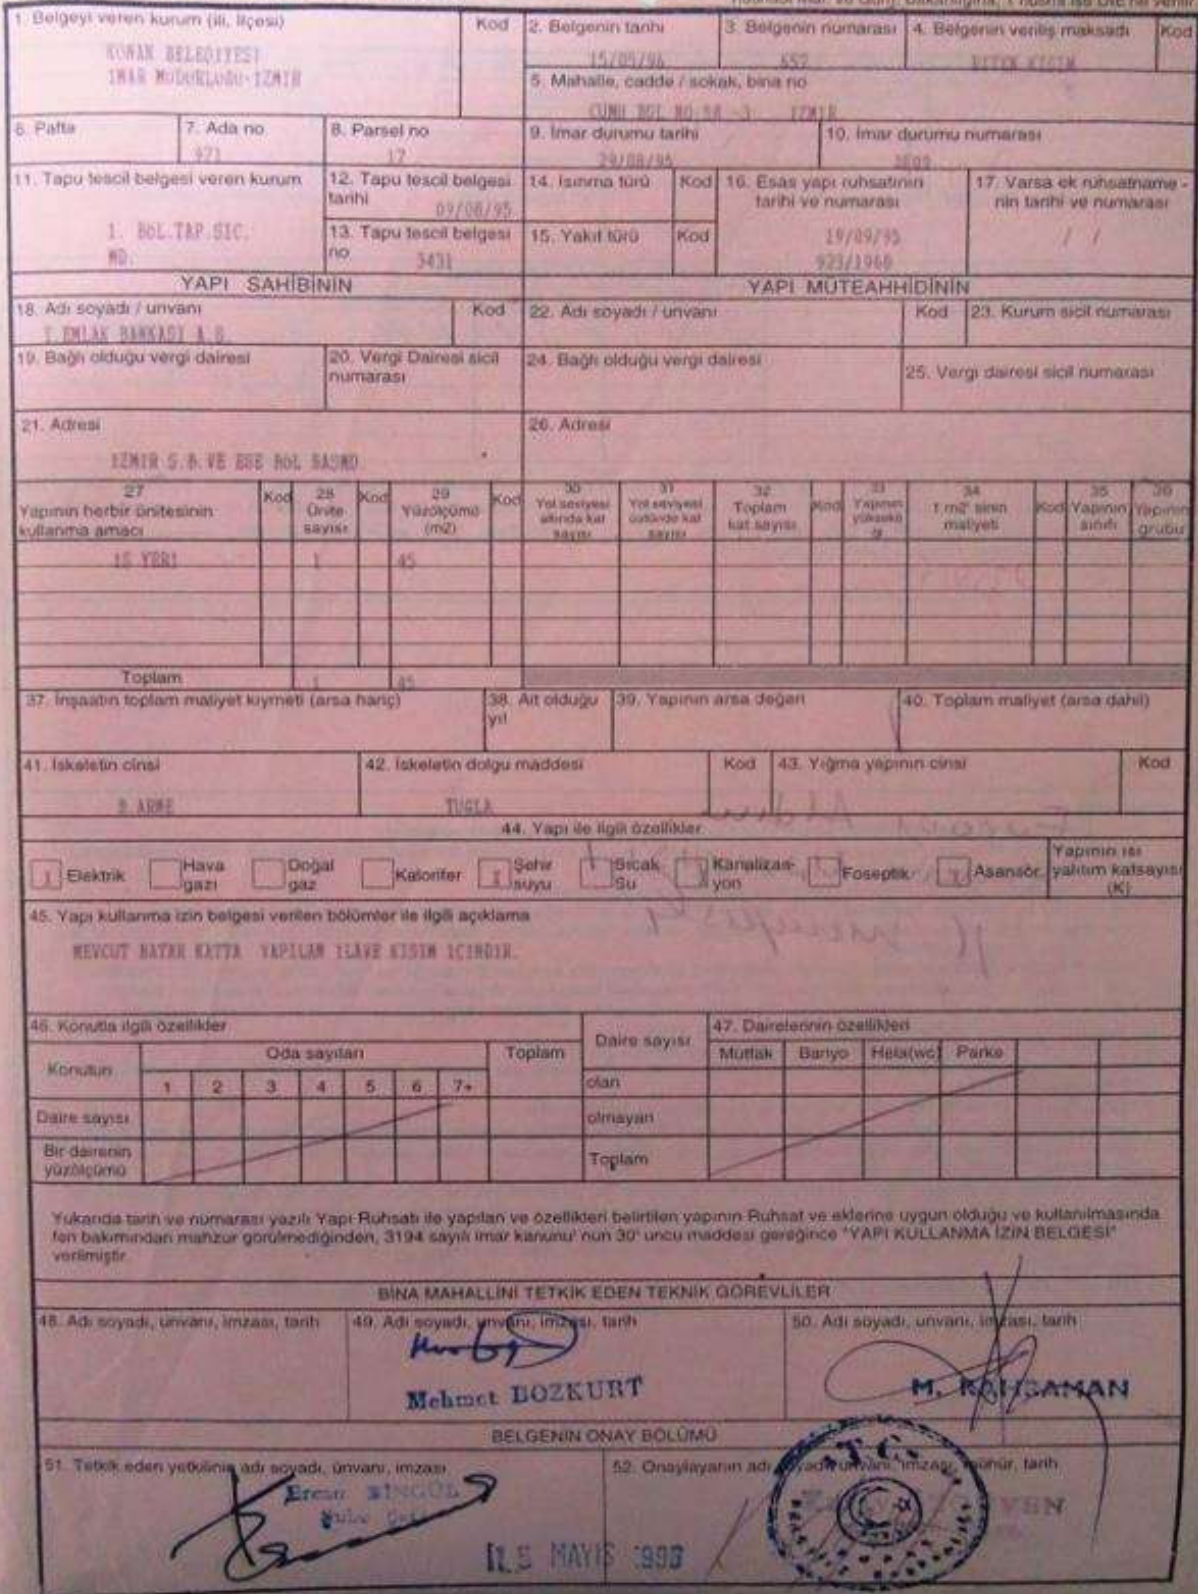 1. Belgeyi veren kurum (ili, ilçesi)
Kod
KONAK BELEDİYESİ
İMAR MÜDÜRLÜĞÜ-İZMİR
2. Belgenin tarihi
15/05/96
3. Belgenin numarası
657
4. Belgenin veriliş maksadı
Kod
BİTEN KISIM
5. Mahalle, cadde / sokak, bina no
CUMH BUL NO.58 -3 İZMİR
6. Pafta
7. Ada no
971
8. Parsel no
17
9. İmar durumu tarihi
29/08/95
10. İmar durumu numarası
11. Tapu tescil belgesi veren kurum
1. BÖL.TAP.SİC.
MD.
12. Tapu tescil belgesi
tarihi
09/08/95
13. Tapu tescil belgesi
no
3431
14. Isınma türü
Kod
15. Yakıt türü
Kod
16. Esas yapı ruhsatının
tarihi ve numarası
19/09/95
923/1960
17. Varsa ek ruhsatname -
nin tarihi ve numarası
/ /
YAPI SAHİBİNİN
YAPI MÜTEAHHİDİNİN
18. Adı soyadı / unvanı
Kod
T.EMLAK BANKASI A.Ş.
22. Adı soyadı / unvanı
Kod
23. Kurum sicil numarası
19. Bağlı olduğu vergi dairesi
20. Vergi Dairesi sicil
numarası
24. Bağlı olduğu vergi dairesi
25. Vergi dairesi sicil numarası
21. Adresi
İZMİR G.B.VE EGE BÖL BAŞMD.
26. Adresi
27
Yapının herbir ünitesinin
kullanma amacı
Kod
28
Ünite
sayısı
Kod
29
Yüzölçümü
(m2)
Kod
30
Yol seviyesi
altında kat
sayısı
31
Yol seviyesi
üstünde kat
sayısı
32
Toplam
kat sayısı
Kod
33
Yapının
yüksekli
ği
34
1 m2' sinin
maliyeti
Kod
35
Yapının
sınıfı
36
Yapının
grubu
İŞ YERİ 1 45
Toplam 1 45
37. İnşaatın toplam maliyet kıymeti (arsa hariç)
38. Ait olduğu
yıl
39. Yapının arsa değeri
40. Toplam maliyet (arsa dahil)
41. İskeletin cinsi
B.ARME
42. İskeletin dolgu maddesi
Kod
TUĞLA
43. Yığma yapının cinsi
Kod
44. Yapı ile ilgili özellikler
Elektrik
Hava
gazı
Doğal
gaz
Kalorifer
Şehir
suyu
Sıcak
Su
Kanalizas-
yon
Foseptik
Asansör
Yapının ısı
yalıtım katsayısı
(K)
45. Yapı kullanma izin belgesi verilen bölümler ile ilgili açıklama
MEVCUT BATAR KATTA YAPILAN İLAVE KISIM İÇİNDİR.
46. Konutla ilgili özellikler
Konutun
Oda sayıları
Toplam
1 2 3 4 5 6 7+
Daire sayısı
Bir dairenin
yüzölçümü
Daire sayısı
47. Dairelerinin özellikleri
Mutfak Banyo Hela(wc) Parke
olan
olmayan
Toplam
Yukarıda tarih ve numarası yazılı Yapı Ruhsatı ile yapılan ve özellikleri belirtilen yapının Ruhsat ve eklerine uygun olduğu ve kullanılmasında
fen bakımından mahzur görülmediğinden, 3194 sayılı imar kanunu' nun 30' uncu maddesi gereğince "YAPI KULLANMA İZİN BELGESİ"
verilmiştir.
BİNA MAHALLİNİ TETKİK EDEN TEKNİK GÖREVLİLER
48. Adı soyadı, unvanı, imzası, tarih
49. Adı soyadı, unvanı, imzası, tarih
Mehmet BOZKURT
50. Adı soyadı, unvanı, imzası, tarih
M. KAHRAMAN
BELGENİN ONAY BÖLÜMÜ
51. Tetkik eden yetkilinin adı soyadı, ünvanı, imzası
Ercan BİNGÖL
52. Onaylayanın adı soyadı, unvanı, imzası, mühür, tarih
T.C.
15 MAYIS 1996